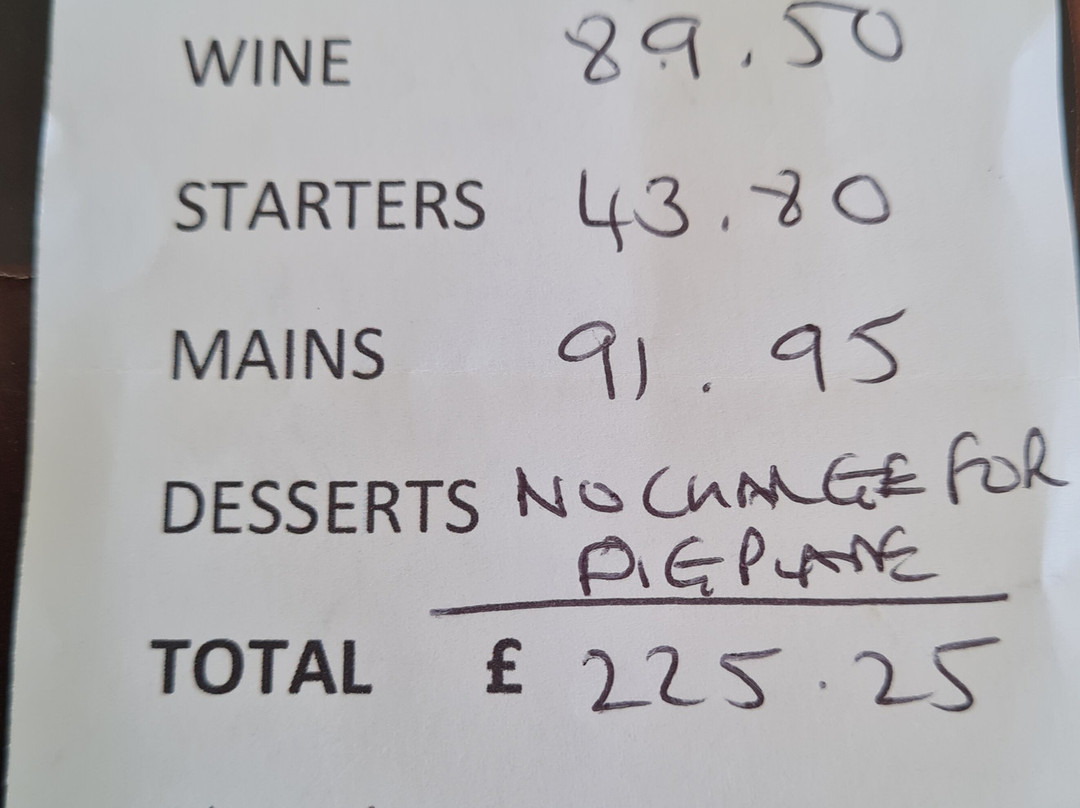 WINE 89.50
STARTERS 43.80
MAINS 91.95
DESSERTS NO CHANGE FOR
PIE PLANE
TOTAL £ 225.25